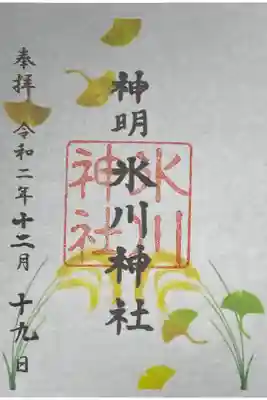 神明氷川神社
奉拝 令和二年十二月十九日
氷川
神社